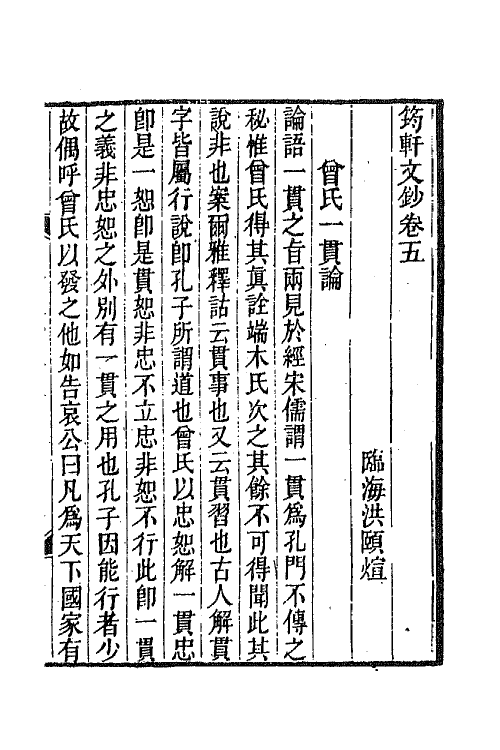 筠軒文鈔卷五
臨海洪頤煊
曾氏一貫論
論語一貫之旨兩見於經宋儒謂一貫爲孔門不傳之
秘惟曾氏得其眞詮端木氏次之其餘不可得聞此其
說非也案爾雅釋詁云貫事也又云貫習也古人解貫
字皆屬行說卽孔子所謂道也曾氏以忠恕解一貫忠
卽是一恕卽是貫恕非忠不立忠非恕不行此卽一貫
之義非忠恕之外別有一貫之用也孔子因能行者少
故偶呼曾氏以發之他如告哀公曰凡爲天下國家有